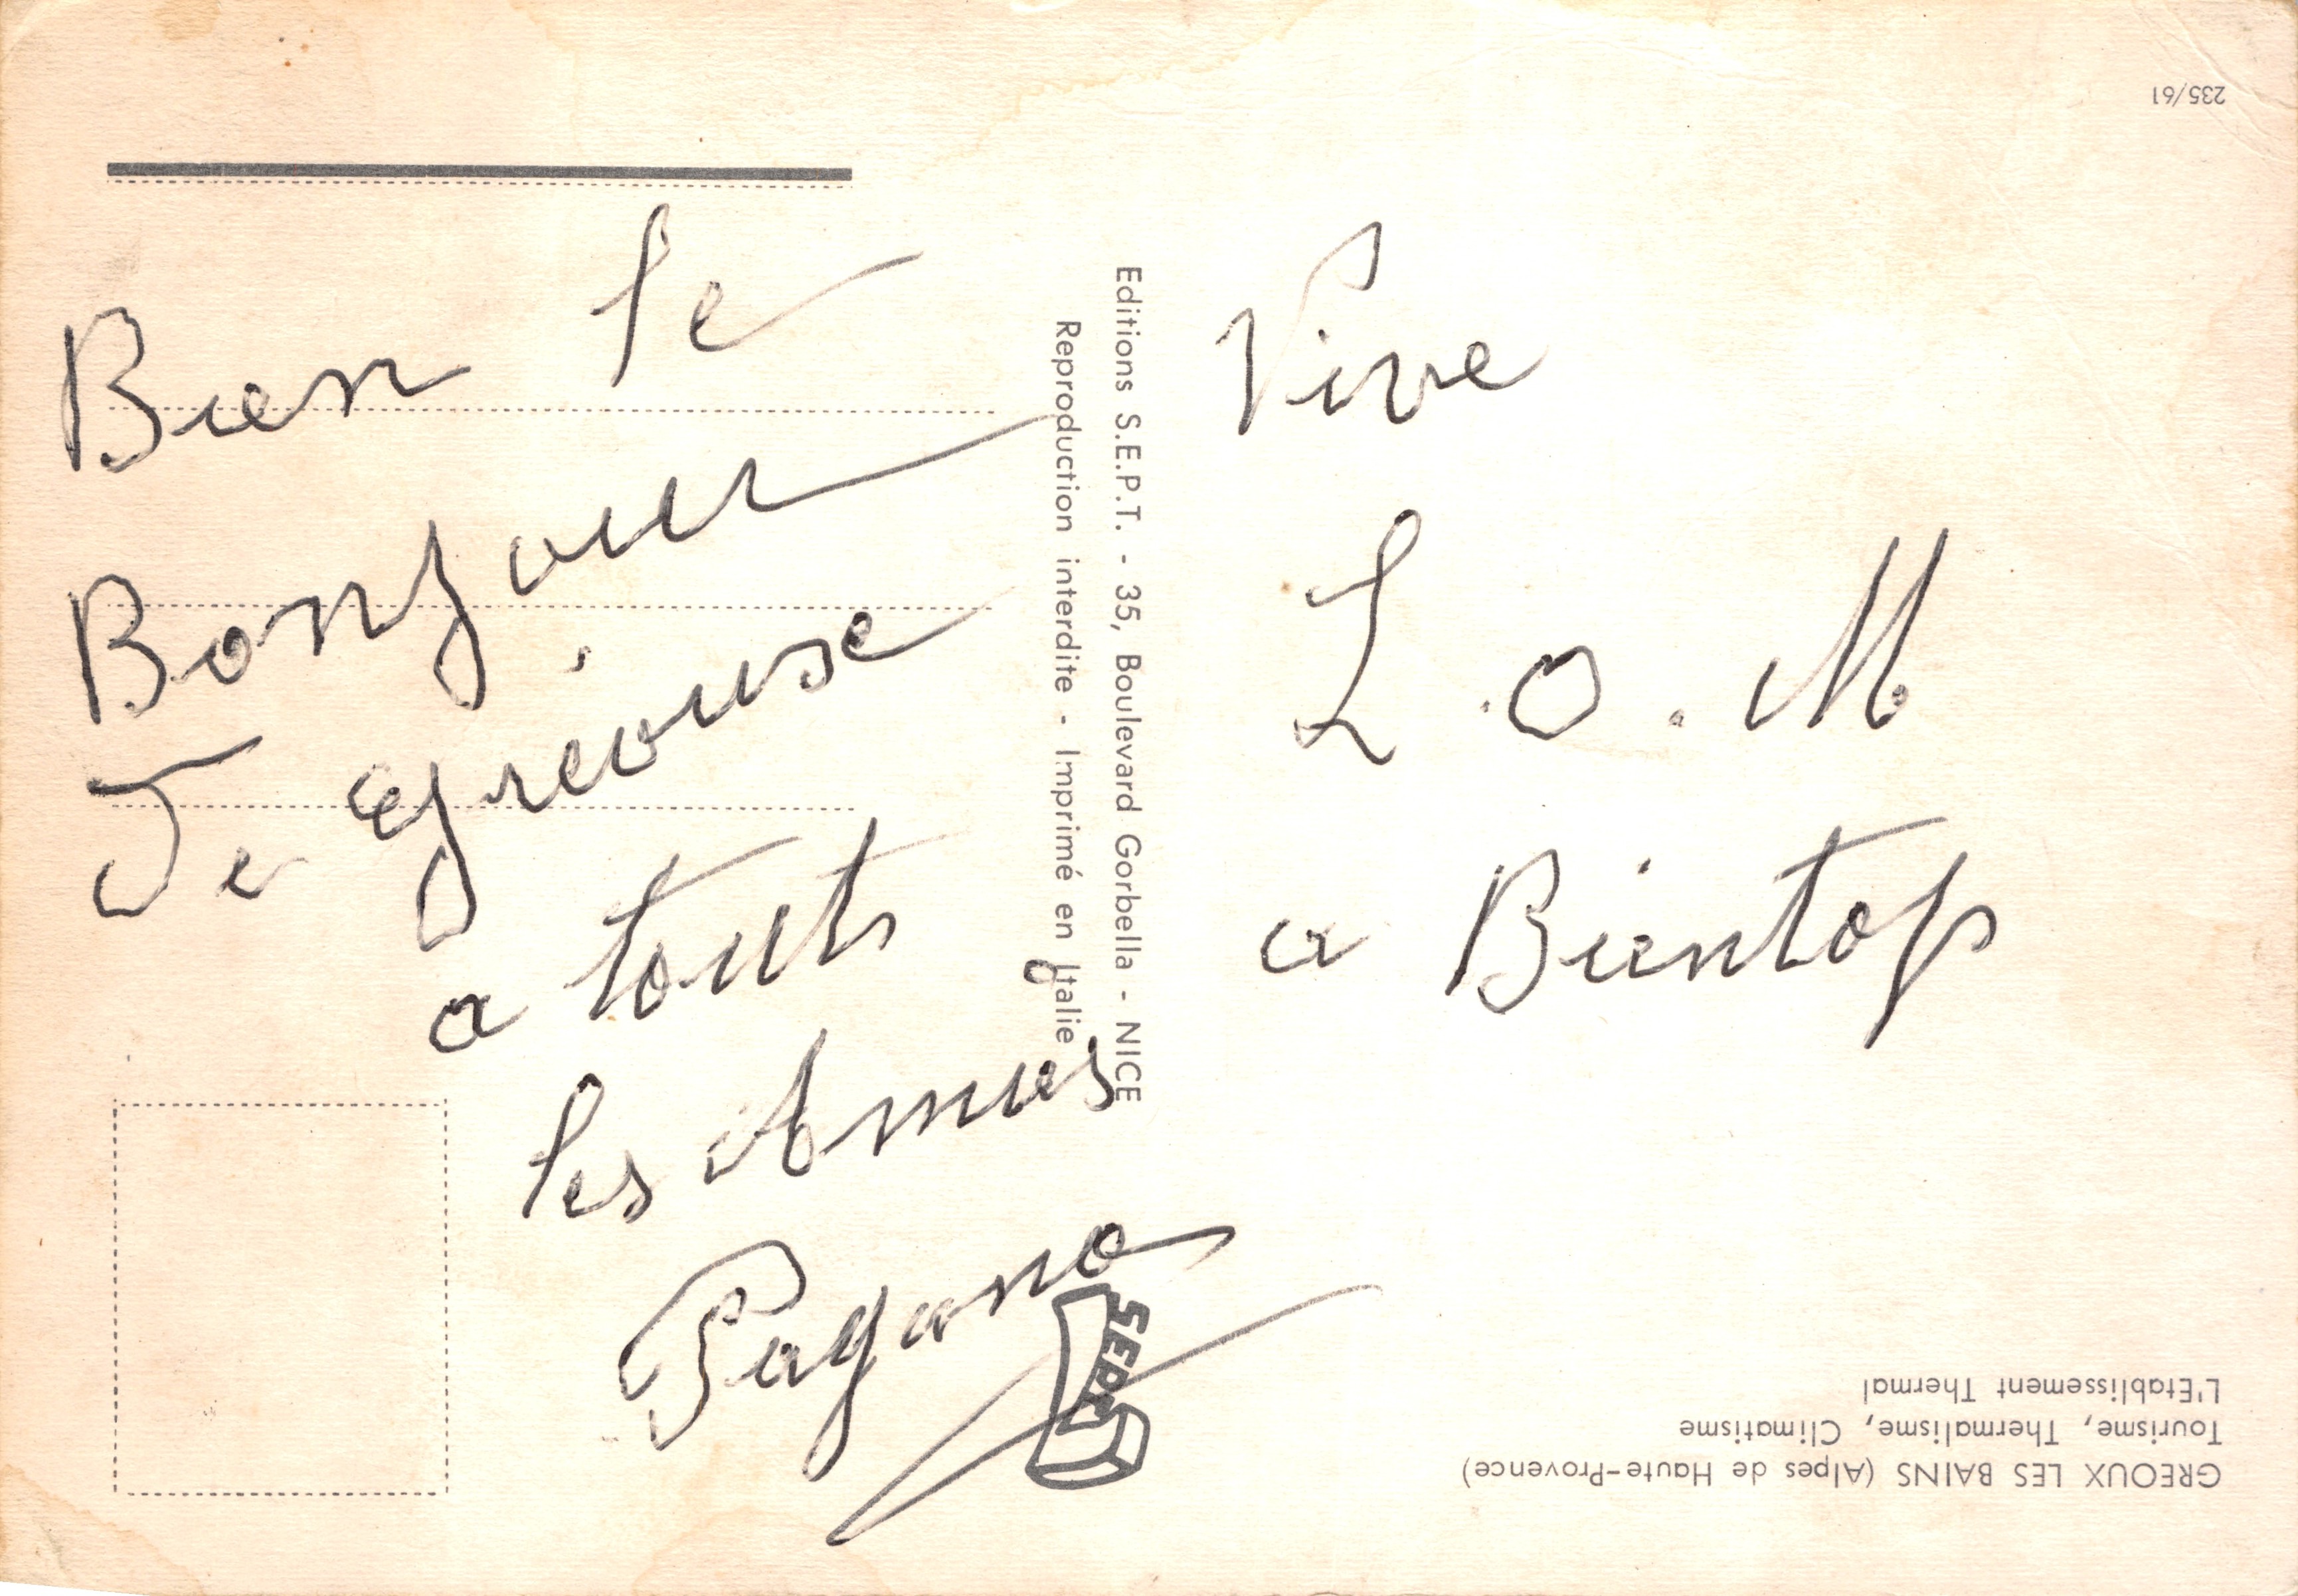 Bien le
Bonjour
De Greouse
a touts
les Amies
Pagano
Vive
L.O.M
a Bientop
Editions S.E.P.T. - 35, Boulevard Gorbella - NICE
Reproduction interdite - Imprimé en Italie
SEPT
GREOUX LES BAINS (Alpes de Haute-Provence)
Tourisme, Thermalisme, Climatisme
L'Etablissement Thermal
235/61